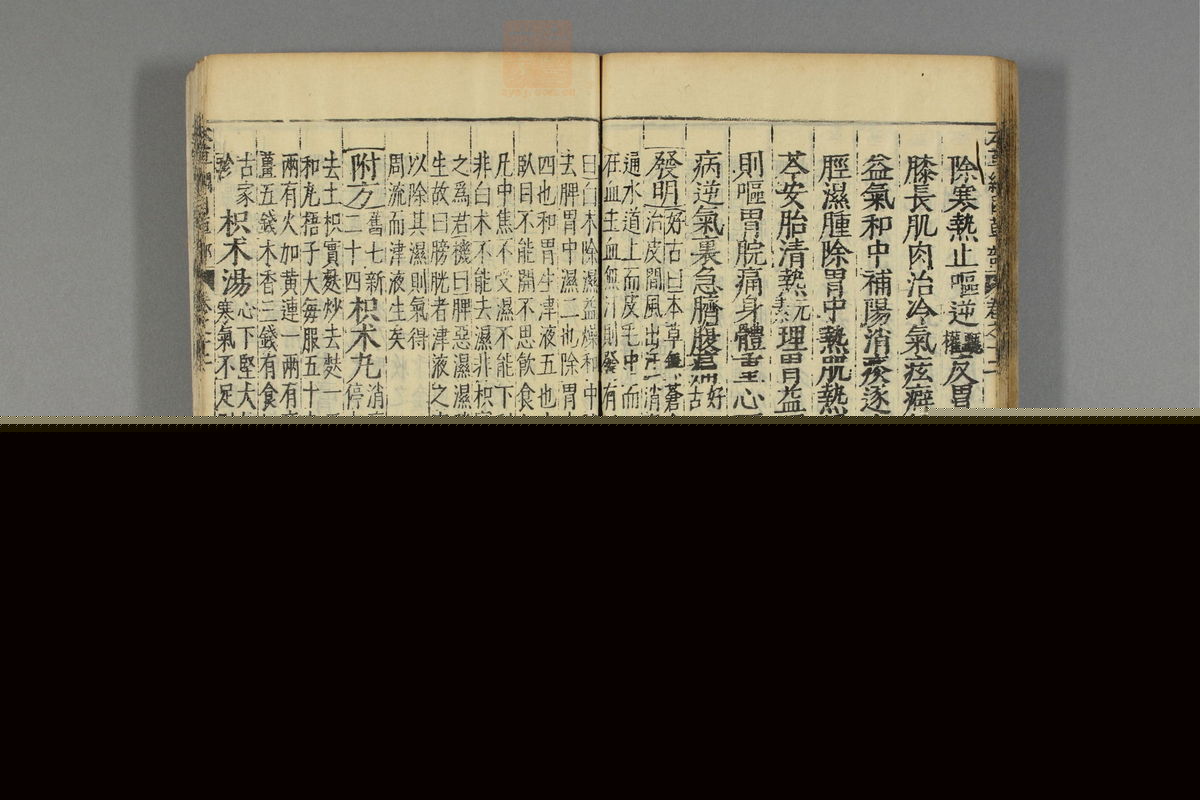 除寒熱止嘔逆甄權反胃
膝長肌肉治冷氣痃癖
益氣和中補陽消痰逐
脛濕腫除胃中熱肌熱
芩安胎清熱元素理胃益
則嘔胃脘痛身體重心
病逆氣裏急臍腹痛好古
發明好古曰本草無蒼
治皮間風出汗消
逼水道上而皮毛中而
在血主血無汗則發有
曰白朮除濕益燥和中
去脾胃中濕二也除胃
四也和胃生津液五也
臥目不能開不思飲食
凡中焦不受濕不能下
非白朮不能去濕非枳
之爲君機曰脾惡濕濕
生故曰膀胱者津液之
以除其濕則氣得
周流而津液生矣
附方舊七新二十四枳朮丸消停
去土枳實麩炒去麩一
和丸梧子大每服五十
兩有火加黃連一兩有
薑五錢木香三錢有食
古家珍枳朮湯心下堅大
寒氣不足